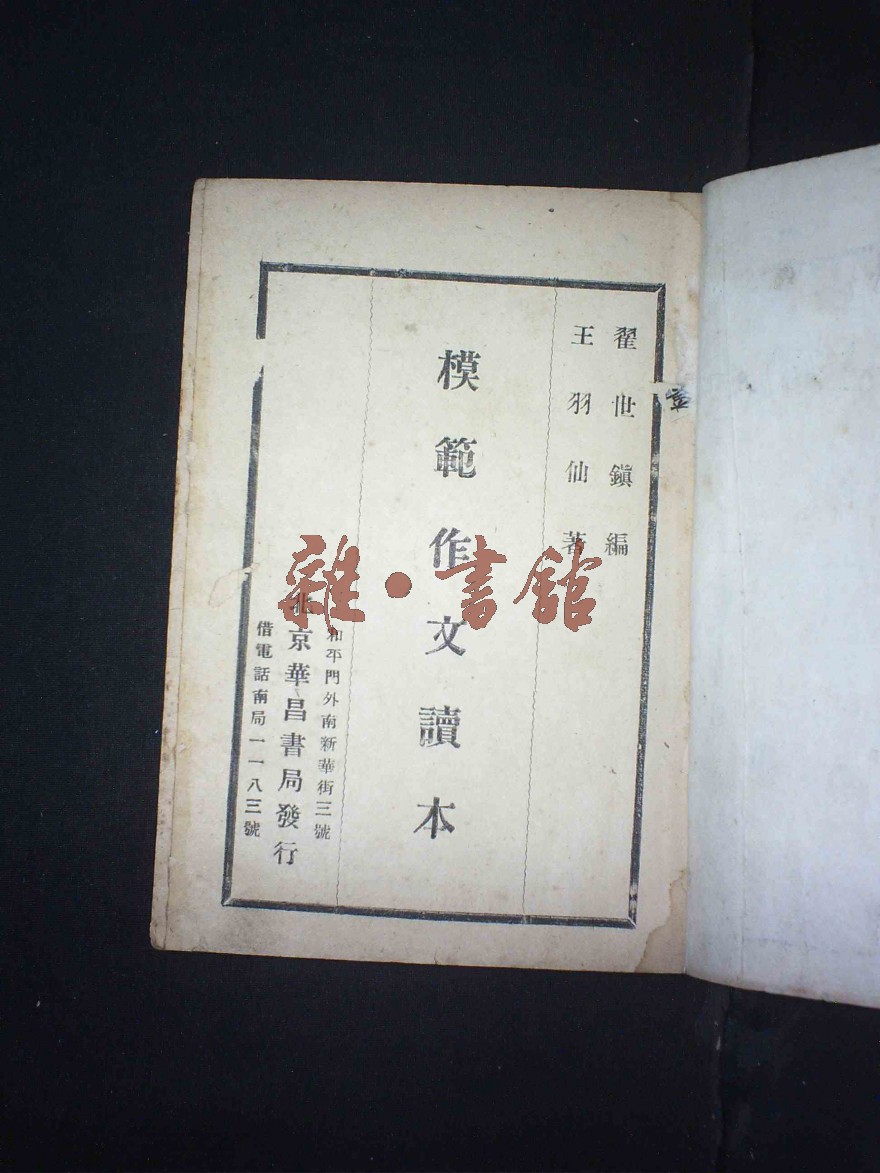 翟世鎭編
王羽仙著
模範作文讀本
和平門外南新華街三號
北京華昌書局發行
借電話南局一一八三號
雜·書館